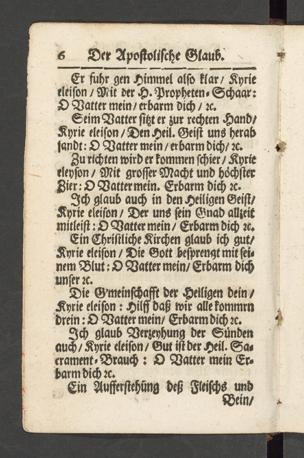 6 Der Apostolische Glaub.
Er fuhr gen Himmel also klar/ Kyrie
eleison/ Mit der H. Propheten-Schaar:
O Vatter mein/ erbarm dich/ ꝛc.
Seim Vatter sitzt er zur rechten Hand/
Kyrie eleison/ Den Heil. Geist uns herab
sandt: O Vatter mein/ erbarm dich/ ꝛc.
Zu richten wird er kommen schier/ Kyrie
eleyson/ Mit grosser Macht und höchster
Zier: O Vatter mein. Erbarm dich ꝛc.
Ich glaub auch in den Heiligen Geist/
Kyrie eleison/ Der uns sein Gnad allzeit
mitleist: O Vatter mein/ Erbarm dich ꝛc.
Ein Christliche Kirchen glaub ich gut/
Kyrie eleison/ Die Gott besprengt mit sei-
nem Blut: O Vatter mein/ Erbarm dich
unser ꝛc.
Die G'meinschafft der Heiligen dein/
Kyrie eleison: Hilff daß wir alle kommrn
drein: O Vatter mein/ Erbarm dich ꝛc.
Ich glaub Verzeyhung der Sünden
auch/ Kyrie eleison/ Gut ist der Heil. Sa-
crament-Brauch: O Vatter mein Er-
barm dich ꝛc.
Ein Aufferstehũng deß Fleischs und
Bein/